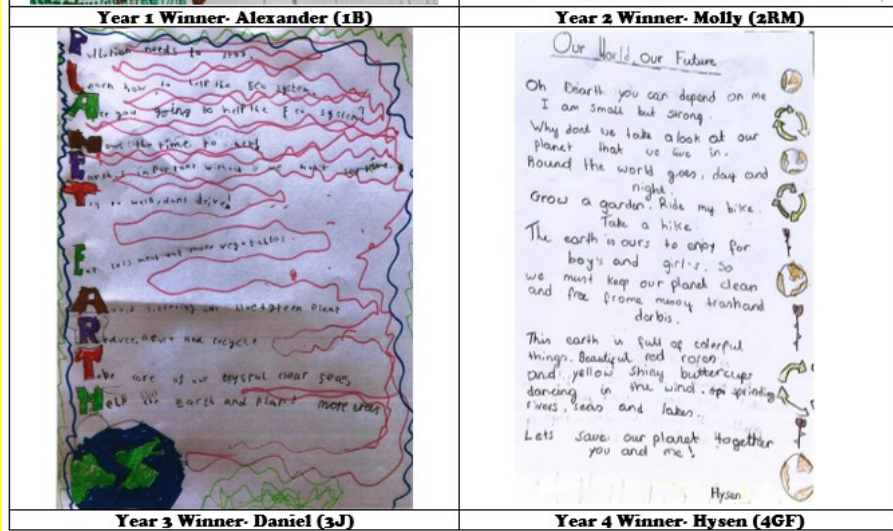 Year 1 Winner- Alexander (1B)
Year 2 Winner- Molly (2RM)
Pollution needs to stop.
Learn how to help the Eco system.
Are you going to help the Eco system?
Now! the time to
Earth is important without it we won't
Try to walk, dont drive!
Eat less meat eat more vegetables.
Avoid littering our green Plant
Reduce, reuse and recycle
Take care of our crystal clear seas
Help the Earth and Plant more
Our World, our Future
Oh Earth you can depend on me
I am small but strong.
Why dont we take a look at our
planet that we live in.
Round the world goes, day and
night.
Grow a garden. Ride my bike.
Take a hike.
The earth is ours to enjoy for
boy's and girl's. So
we must keep our planet clean
and free frome trashand
darbis.
This earth is full of colorful
things. Beautiful red
and yellow shiny buttercups
dancing in the wind.
rivers, seas and lakes.
Lets save our planet together
you and me!
Hysen
Year 3 Winner- Daniel (3J)
Year 4 Winner- Hysen (4GF)